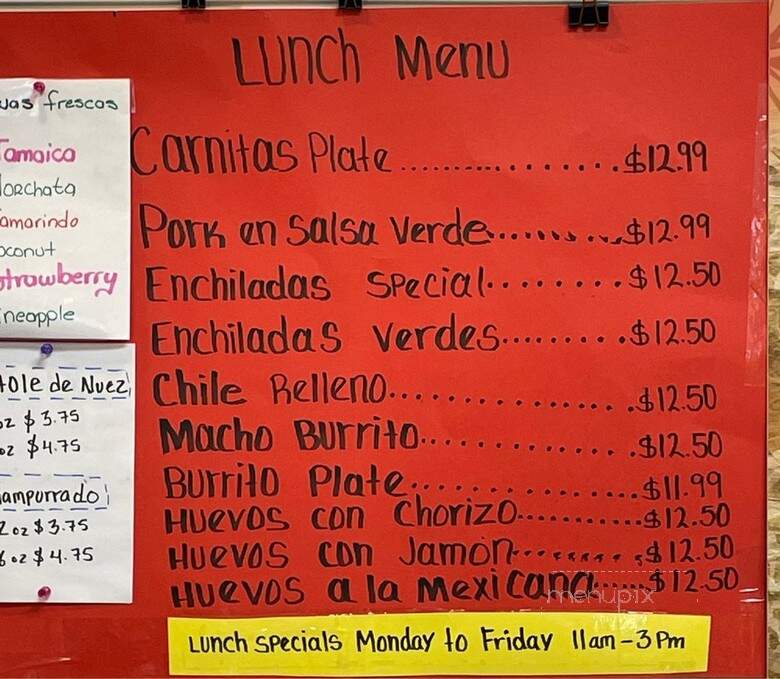 Lunch Menu
Carnitas Plate....................$12.99
Pork en Salsa Verde............$12.99
Enchiladas Special.........$12.50
Enchiladas Verdes.........$12.50
Chile Relleno.................$12.50
Macho Burrito...............$12.50
Burrito Plate................$11.99
Huevos con Chorizo...........$12.50
Huevos con Jamón..........$12.50
Huevos a la Mexicana......$12.50
Lunch Specials Monday to Friday 11am-3Pm
uas frescas
Jamaica
Horchata
amarindo
oconut
Strawberry
ineapple
tole de Nuez
oz $3.75
oz $4.75
ampurrado
2oz $3.75
6oz $4.75
menupix